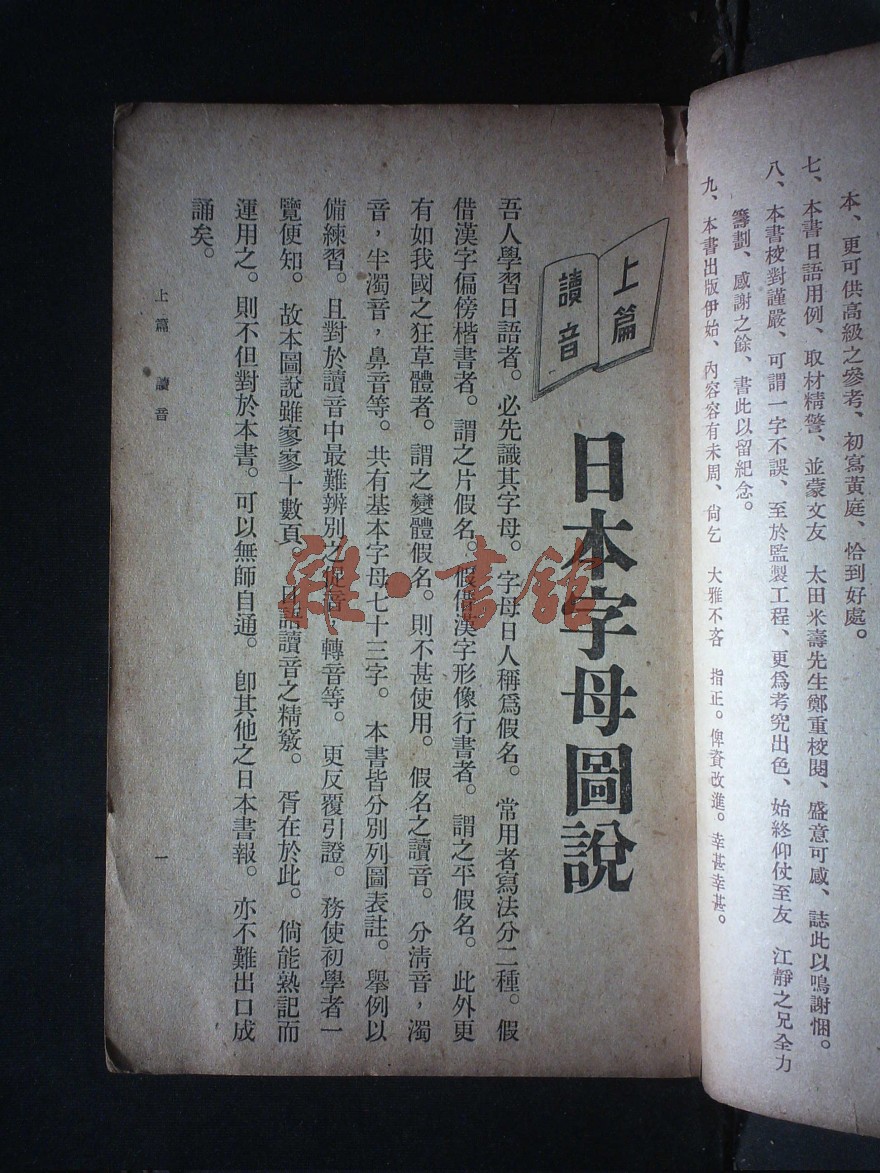 本、更可供高級之參考、初寫黃庭、恰到好處。
七、本書日語用例、取材精警、並蒙文友　太田米壽先生鄭重校閱、盛意可感、誌此以鳴謝悃。
八、本書校對謹嚴、可謂一字不誤、至於監製工程、更爲考究出色、始終仰仗至友　江靜之兄全力
籌劃、感謝之餘、書此以留紀念。
九、本書出版伊始、內容容有未周、尙乞　大雅不吝　指正。俾資改進。幸甚幸甚。
上篇
讀音
日本字母圖說
吾人學習日語者。必先識其字母。字母日人稱爲假名。常用者寫法分二種。假
借漢字偏傍楷書者。謂之片假名。假借漢字形像行書者。謂之平假名。此外更
有如我國之狂草體者。謂之變體假名。則不甚使用。假名之讀音。分淸音，濁
音，半濁音，鼻音等。共有基本字母七十三字。本書皆分別列圖表註。舉例以
備練習。且對於讀音中最難辨別之促音，轉音等。更反覆引證。務使初學者一
覽便知。故本圖說雖寥寥十數頁　日語讀音之精竅。胥在於此。倘能熟記而
運用之。則不但對於本書。可以無師自通。卽其他之日本書報。亦不難出口成
誦矣。
上篇　讀音
一
雜·書館